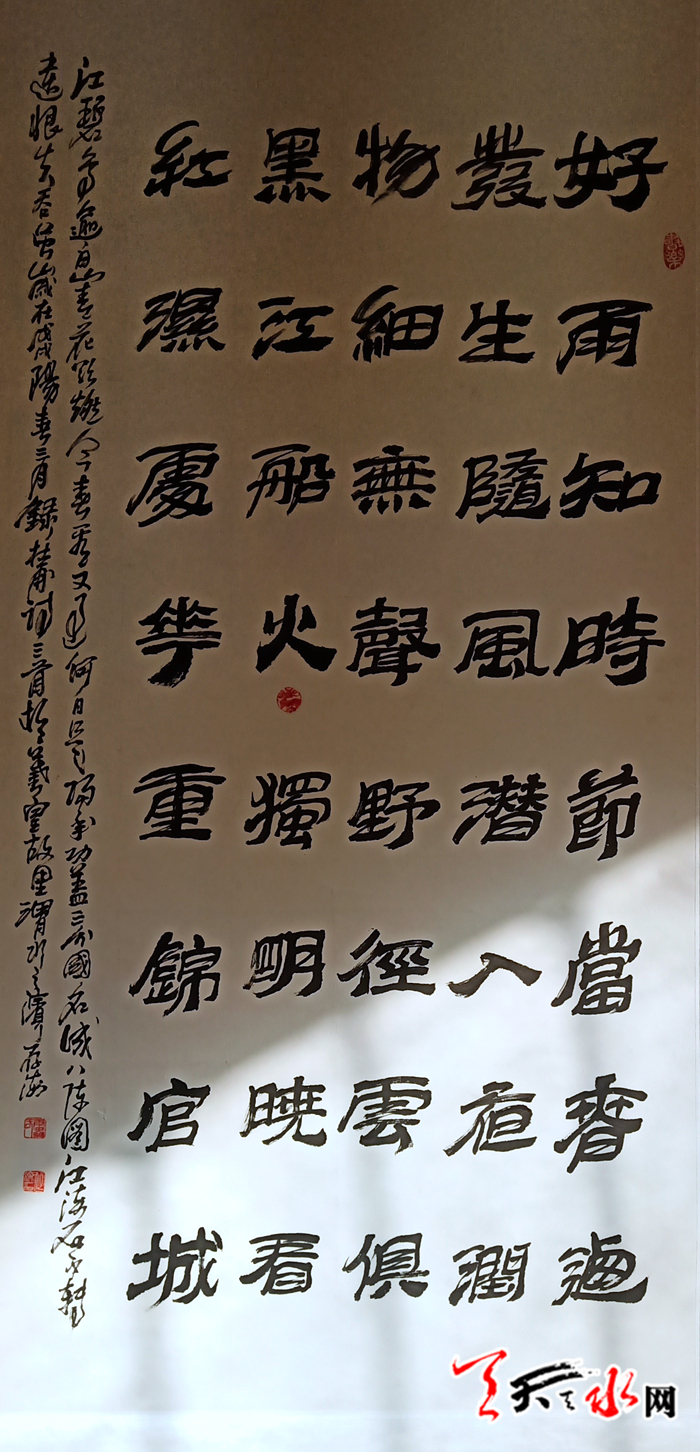 好雨知時節當春迺
發生隨風潛入夜潤
物細無聲野徑雲俱
黑江船火獨明曉看
紅濕處華重錦官城
江碧鳥逾白山青花欲燃今春看又過何日是歸年功蓋三分國名成八陣圖江流石不轉
遺恨失吞吳歲在戌陽春三月錄杜甫詩三首於羲皇故里渭水之濱
天天天水网